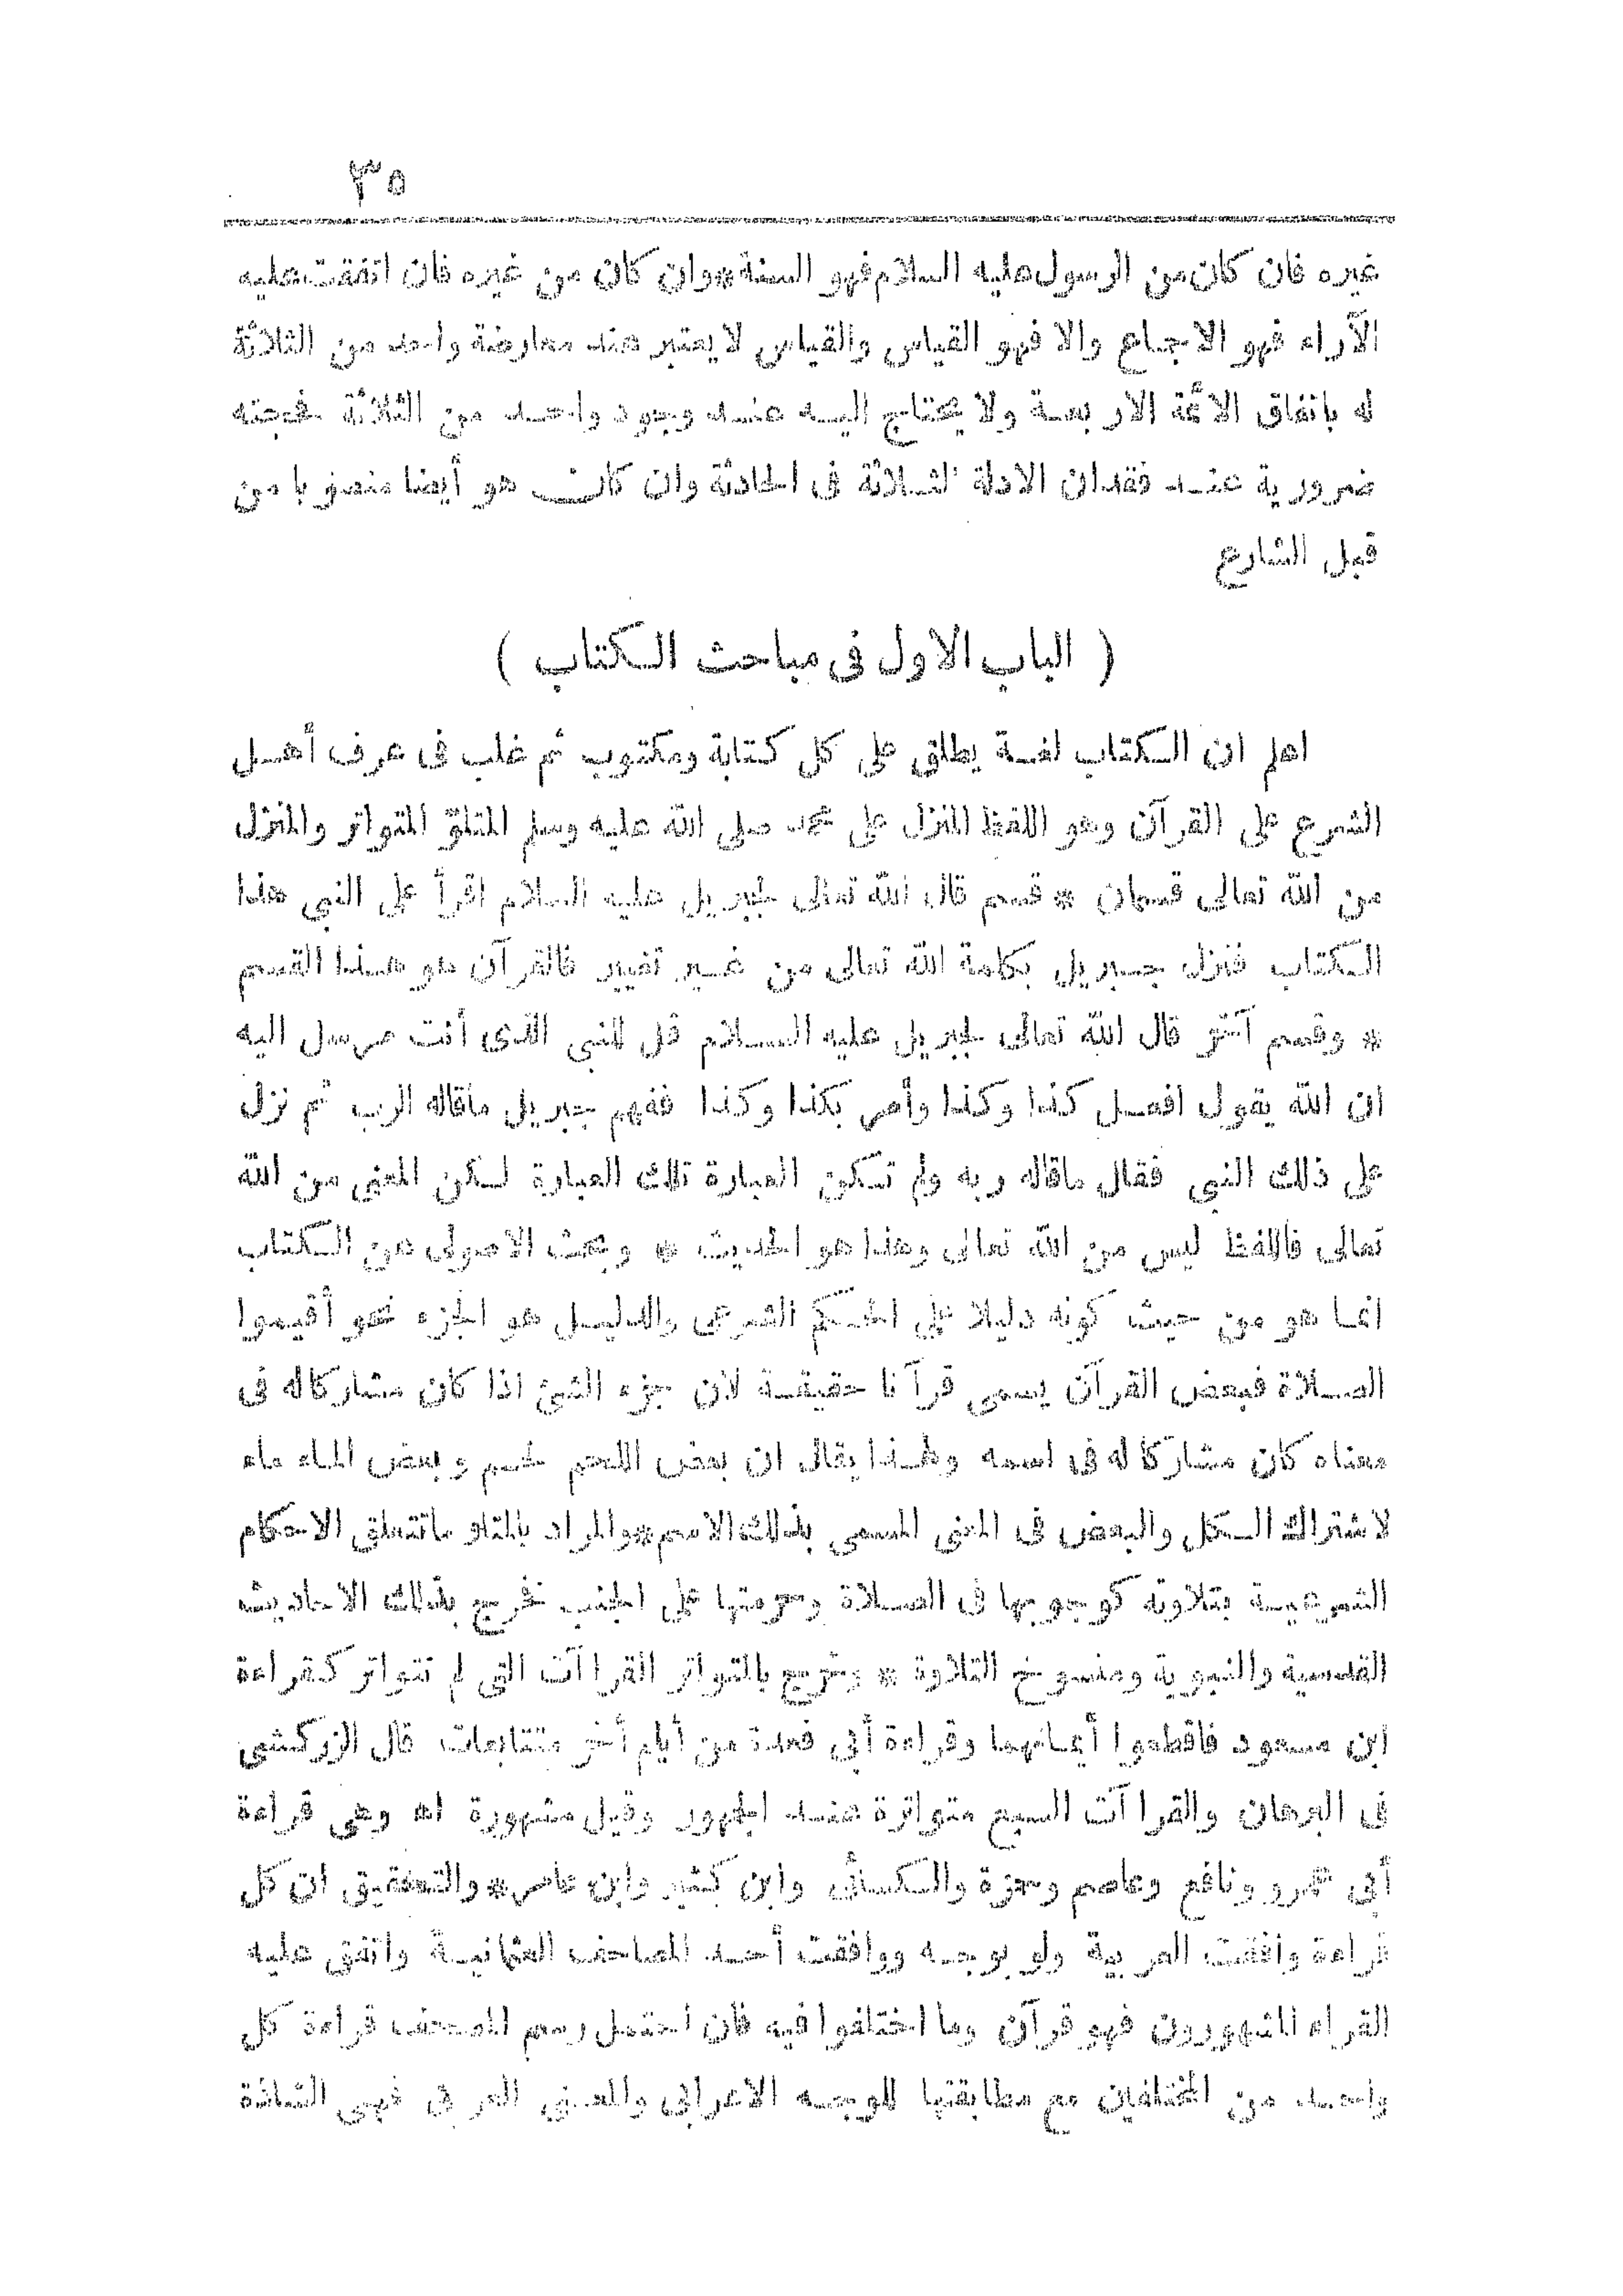 ٣٥
غيره فان كان من الرسول عليه السلام فهو السنة * وان كان من غيره فان اتفقت عليه
الآراء فهو الاجماع والا فهو القياس والقياس لا يعتبر عند معارضة واحد من الثلاثة
له باتفاق الائمة الاربعة ولا يحتاج اليه عند وجود واحد من الثلاثة فحجته
ضرورية عند فقدان الادلة الثلاثة فى الحادثة وان كان هو أيضا منصوبا من
قبل الشارع
( الباب الاول فى مباحث الكتاب )
اعلم ان الكتاب لغة يطلق على كل كتابة ومكتوب ثم غلب فى عرف أهل
الشرع على القرآن وهو اللفظ المنزل على محمد صلى الله عليه وسلم المتلو المتواتر والمنزل
من الله تعالى قسمان * قسم قال الله تعالى لجبريل عليه السلام اقرأ على النبي هذا
الكتاب فنزل جبريل بكلمة الله تعالى من غير تغيير فالقرآن هو هذا القسم
* وقسم آخر قال الله تعالى لجبريل عليه السلام قل للنبي الذى أنت مرسل اليه
ان الله يقول افعل كذا وكذا وأمر بكذا وكذا ففهم جبريل ماقاله الرب ثم نزل
على ذلك النبي فقال ماقاله ربه ولم تكن العبارة تلك العبارة لكن المعنى من الله
تعالى فاللفظ ليس من الله تعالى وهذا هو الحديث * وبحث الاصولى عن الكتاب
انما هو من حيث كونه دليلا على الحكم الشرعى والدليل هو الجزء نحو أقيموا
الصلاة فبعض القرآن يسمى قرآنا حقيقة لان جزء الشئ اذا كان مشاركاله فى
معناه كان مشاركا له فى اسمه ولهذا يقال ان بعض اللحم لحم وبعض الماء ماء
لاشتراك الكل والبعض فى المعنى المسمى بذلك الاسم * والمراد بالمتلو ماتتعلق الاحكام
الشرعية بتلاوته كوجوبها فى الصلاة وحرمتها على الجنب فخرج بذلك الاحاديث
القدسية والنبوية ومنسوخ التلاوة * وخرج بالتواتر القراآت التى لم تتواتر كقراءة
ابن مسعود فاقطعوا أيمانهما وقراءة أبى فعدة من أيام أخر متتابعات قال الزركشى
فى البرهان والقراآت السبع متواترة عند الجمهور وقيل مشهورة اه وهى قراءة
أبى عمرو ونافع وعاصم وحمزة والكسائى وابن كثير وابن عامر * والتحقيق ان كل
قراءة وافقت العربية ولو بوجه ووافقت أحد المصاحف العثمانية واتفق عليه
القراء المشهورون فهو قرآن وما اختلفوا فيه فان احتمل رسم المصحف قراءة كل
واحد من المختلفين مع مطابقتها للوجه الاعرابى والمعنى العربى فهى الشاذة